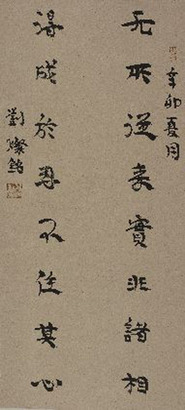 无所從来實非諸相
辛卯夏月
得成於忍不住其心
劉燦銘